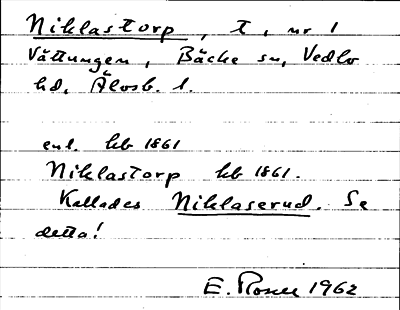 Niklastorp, t, nr 1
Vättungen, Bäcke sn, Vedbo
hd, Älvsb. l.
enl. kb 1861
Niklastorp kb 1861.
Kallades Niklaserud. Se
detta!
E. Rosell 1962